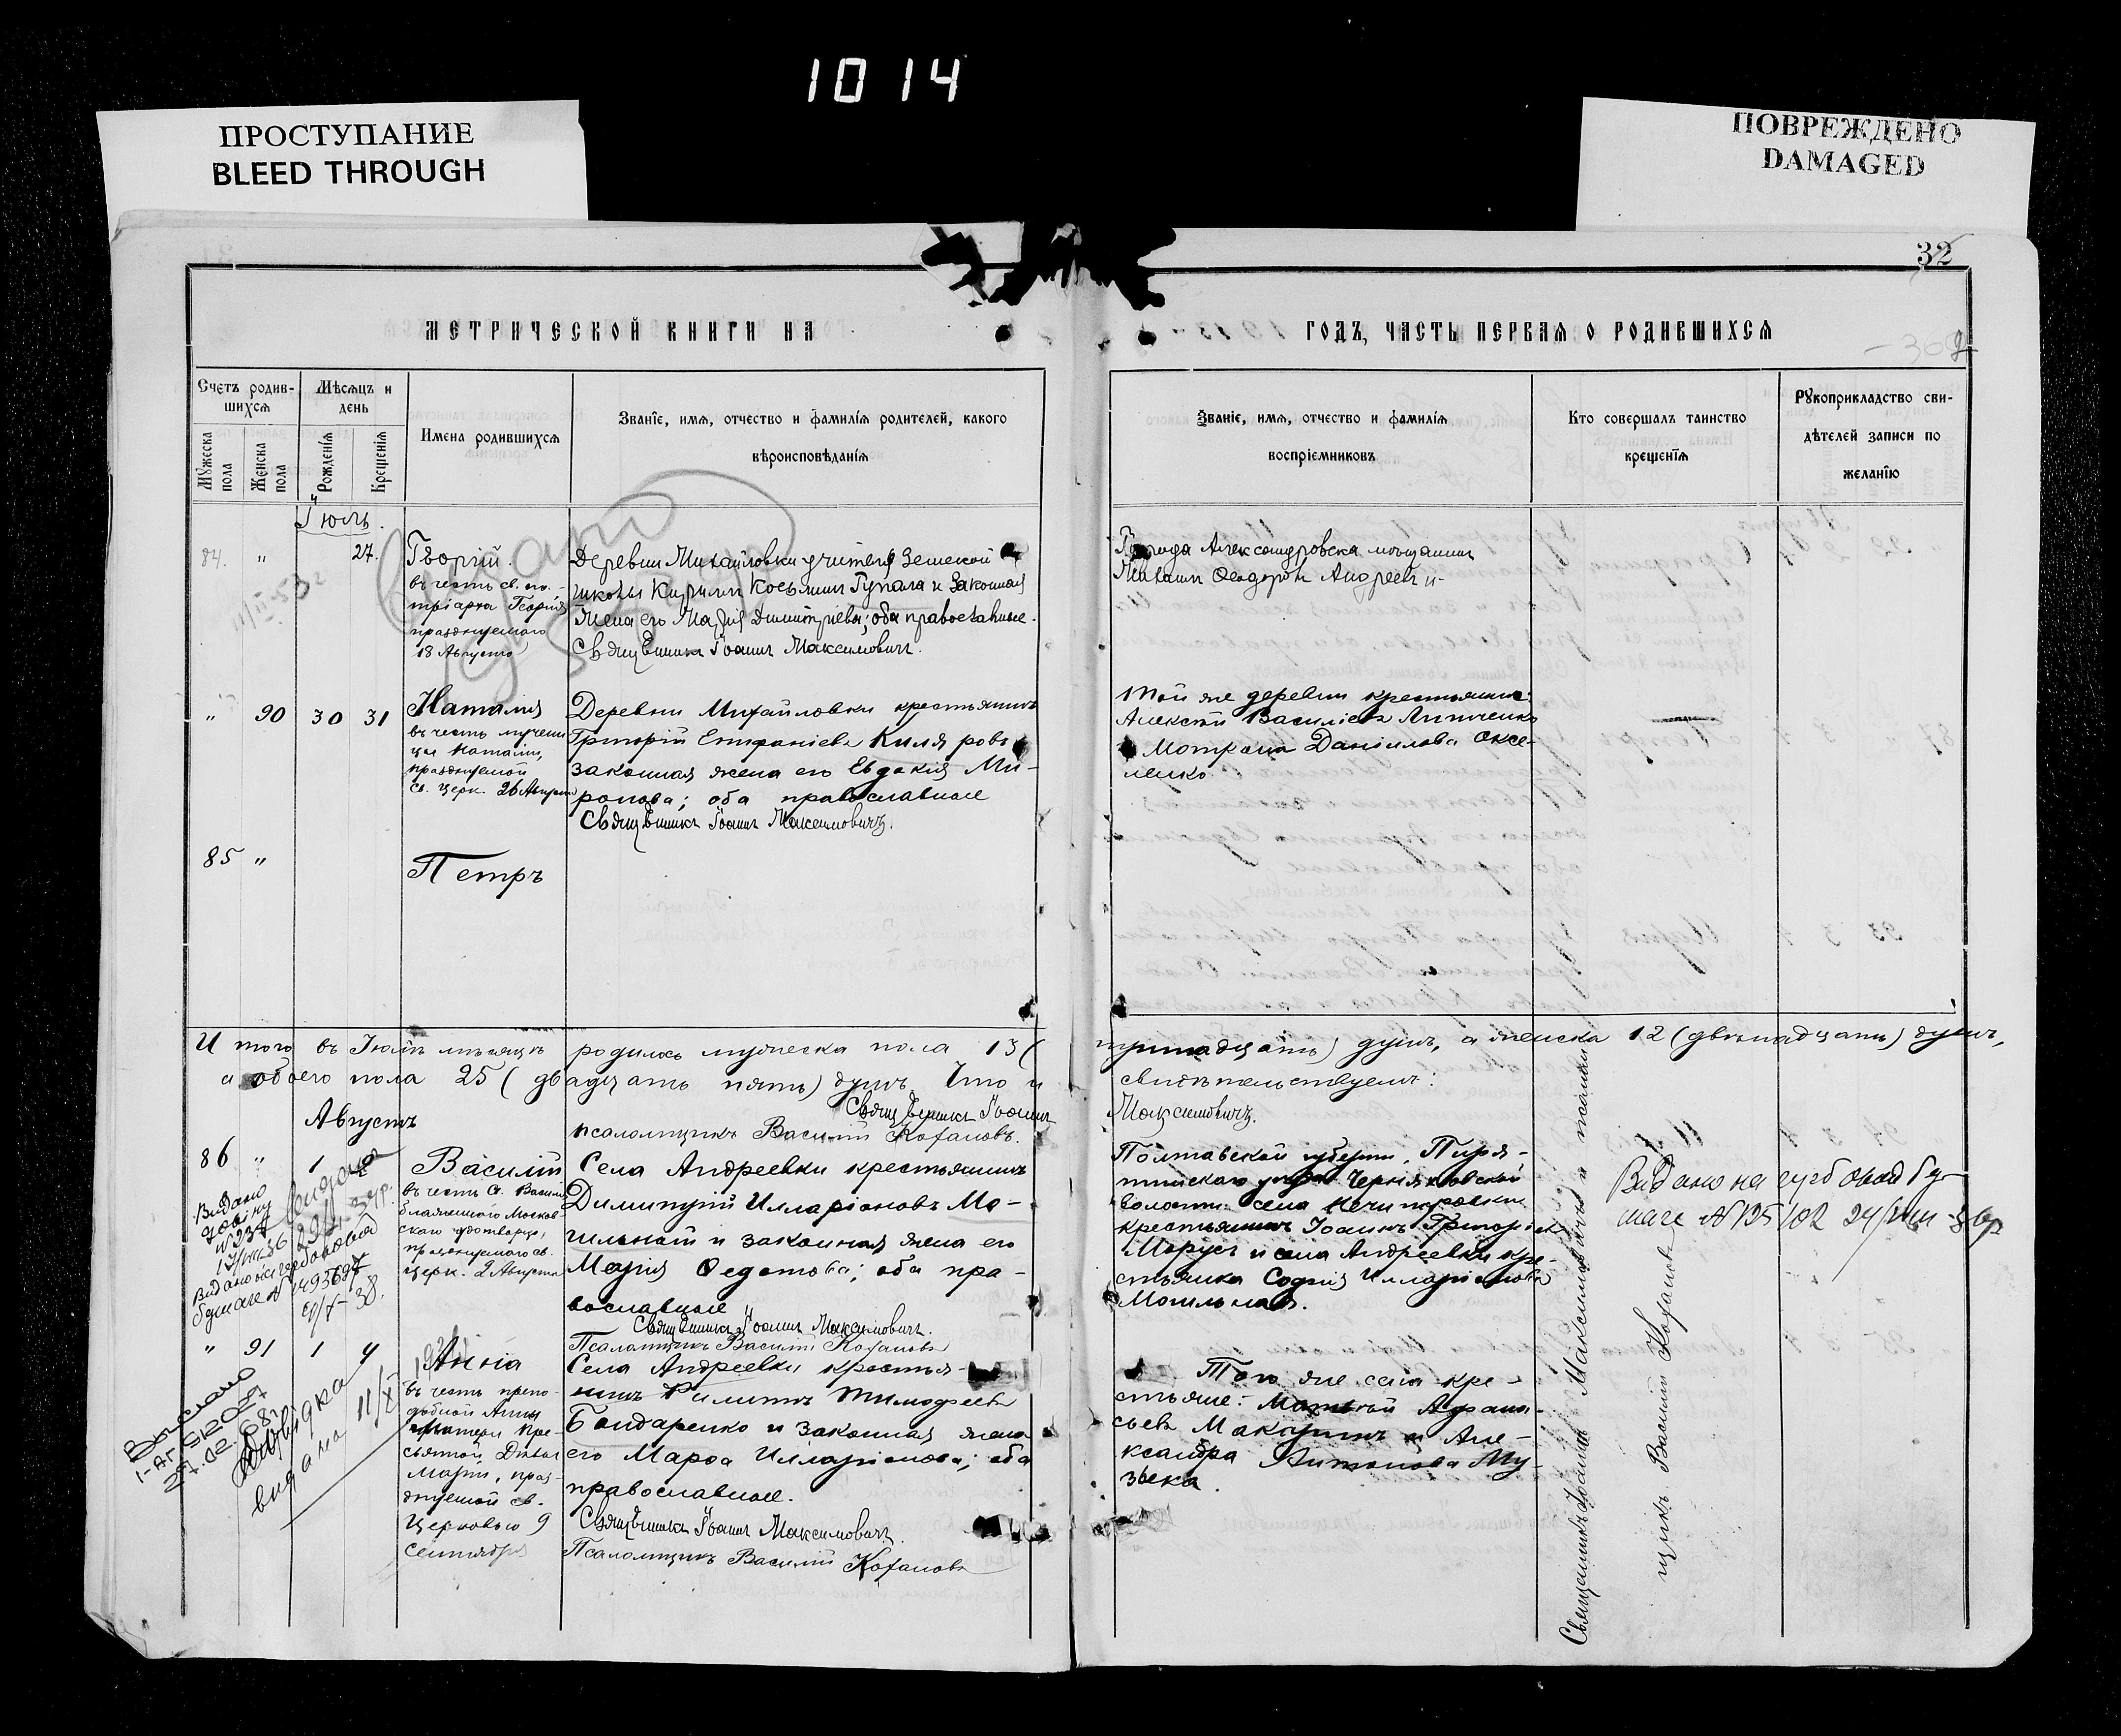 1014
ПРОСТУПАНИЕ
BLEED THROUGH
ПОВРЕЖДЕНО
DAMAGED
32
МЕТРИЧЕСКОЙ КНИГИ НА
ГОДЪ, ЧАСТЬ ПЕРВАЯ О РОДИВШИХСЯ
Счетъ родив-
шихся
Мѣсяцъ и
день
Мужеска
пола
Женска
пола
Рожденїя
Крещенїя
Имена родившихся
Званїе, имя, отчество и фамилїя родителей, какого
вѣроисповѣданїя
Званїе, имя, отчество и фамилїя
воспрїемниковъ
Кто совершалъ таинство
крещенїя
Рукоприкладство сви-
дѣтелей записи по
желанїю
Іюль.
84. " 27.
Георгій.
въ честь св. па-
тріарха Георгія
празднуемаго
18 Августа
Деревни Михайловки учитель Земской
школы Кириллъ Косьминъ Гупала и законная
жена его Марія Димитріева; оба православные.
Священникъ Іоаннъ Максимовичъ.
Города Александровска мѣщанинъ
Михаилъ Ѳеодоровъ Андреевъ и
" 90 30 31
Наталія
въ честь мучени
цы Наталіи,
празднуемой
св. церк. 26 Августа
Деревни Михайловки крестьянинъ
Григорій Епифаніевъ
законная жена его Евдокія Ми-
ронова; оба православные
Священникъ Іоаннъ Максимовичъ.
Той же деревни крестьяне:
Алексѣй Василіевъ
Матрона Даніилова Оксе-
ленко
85 "
Петръ
Итого въ Іюлѣ мѣсяцѣ родилось мужеска пола 13 (
тринадцать) душъ, а женска 12 (двѣнадцать) душъ,
а обоего пола 25 (двадцать пять) душъ. Что и
свидѣтельствуемъ:
Священникъ Іоаннъ
Максимовичъ.
псаломщикъ Василій Кохановъ.
Августъ
86 " 1
Василій
въ честь св. Василія
блаженнаго Москов
скаго чудотворца,
празднуемаго св.
церк. 2 Августа
Села Андреевки крестьянинъ
Димитрій Илларіоновъ Мо-
гильный и законная жена его
Марія Ѳедотова; оба пра-
вославные
Священникъ Іоаннъ Максимовичъ.
Псаломщикъ Василій Кохановъ
Полтавской губерніи, Пиря-
тинскаго уѣзда Черняховской
волости села
крестьянинъ Іоаннъ Григоріевъ
и села Андреевки кре-
стьянка Софія Илларіонова
Могильная.
Видано на гербовой бу
маге №
Видано
довідку
Видано на гербовой
бумаге №
" 91 1 4
Анна
въ честь препо-
добной Анны
матери Пре-
святой Дѣвы
Маріи, праз-
днуемой св.
Церковью 9
Сентября
Села Андреевки крестья-
нинъ Филиппъ Тимофеевъ
Бондаренко и законная жена
его Марѳа Илларіонова; оба
православные.
Священникъ Іоаннъ Максимовичъ.
Псаломщикъ Василій Кохановъ
Того же села кре-
стьяне: Матѳій Афана-
сьевъ Макаринъ и Але-
ксандра Антонова Му-
зыка.
Выслано
Довідка
видана 11/XI
Священникъ Іоаннъ Максимовичъ и псалом
щикъ Василій Кохановъ